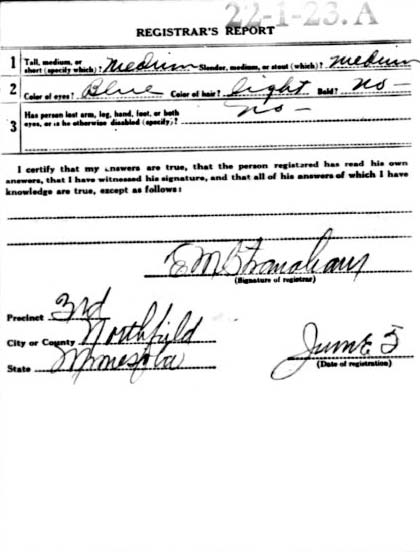 22-1-23. A
REGISTRAR'S REPORT
1 Tall, medium, or short (specify which)? Medium Slender, medium, or stout (which)? medium
2 Color of eyes? Blue Color of hair? light Bald? no –
3 Has person lost arm, leg, hand, foot, or both eyes, or is he otherwise disabled (specify)? no –
I certify that my answers are true, that the person registered has read his own
answers, that I have witnessed his signature, and that all of his answers of which I have
knowledge are true, except as follows:
E M
(Signature of registrar)
Precinct 3rd
City or County Northfield
State Minnesota
June 5
(Date of registration)